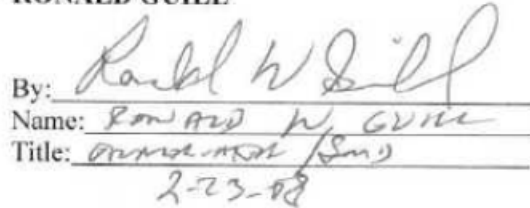 RONALD GUILL
By: Ronald W Guill
Name: RONALD W GUILL
Title:
2-23-08